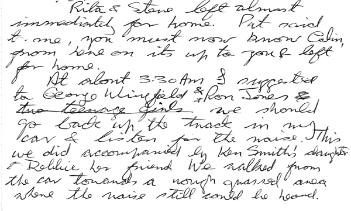 Rita & Steve left almost
immediately for home. Pat said
t. me, you must now know Colin,
from here on its up to you & left
for home.
At about 3.30 Am I suggested
to George Wingfield & Ron Jones &
two teenage girls we should
go back up the track in my
car & listen for the noise. This
we did accompanied by Ken Smith's daughter
& Debbie her friend We walked from
the car towards a rough grassed area
where the noise still could be heard.